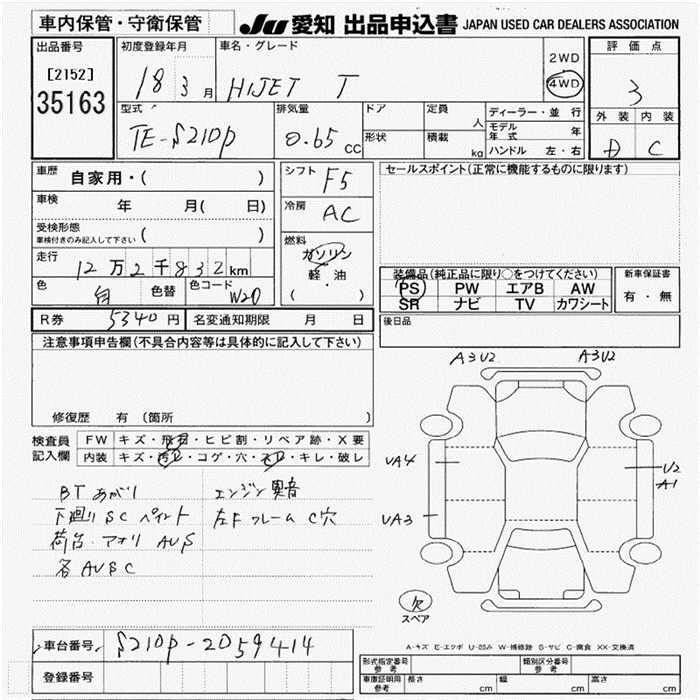 車内保管・守衛保管
JU 愛知 出品申込書 JAPAN USED CAR DEALERS ASSOCIATION
出品番号
[2152]
35163
初度登録年月
18 3 月
車名・グレード
HIJET T
2WD
4WD
評価点
3
外装 内装
D C
型式
TE-S210P
排気量
0.65 CC
ドア
形状
定員
人
積載
kg
ディーラー・並行
モデル年式 年
ハンドル 左・右
車歴 自家用・( )
車検 年 月( 日)
受検形態
車検付きのみ記入して下さい ( )
走行 12万2千832km
色 白 色替 色コード W20
R券 5340円 名変通知期限 月 日
シフト F5
冷房 AC
燃料
ガソリン
軽油
( ・ )
セールスポイント(正常に機能するものに限ります)
装備品(純正品に限り○をつけてください)
PS PW エアB AW
SR ナビ TV カワシート
新車保証書
有・無
後日品
注意事項申告欄(不具合内容等は具体的に記入して下さい)
修復歴 有 (箇所 )
検査員記入欄
FW キズ・飛石・ヒビ割・リペア跡・X要
内装 キズ・汚れ・コゲ・穴・スレ・キレ・破レ
BTあがり エンジン異音
下廻りSCペイント 左FフレームC穴
荷台・アオリ AUS
各AUBC
A3U2 A3U2
UA4
U2
A1
UA3
欠
スペア
A-キズ E-エクボ U-凹み W-補修跡 S-サビ C-腐食 XX-交換済
車台番号 S210P-2059414
登録番号
形式指定番号 参考
類別区分番号 参考
車庫証明用 参考 長さ cm 幅 cm 高さ cm